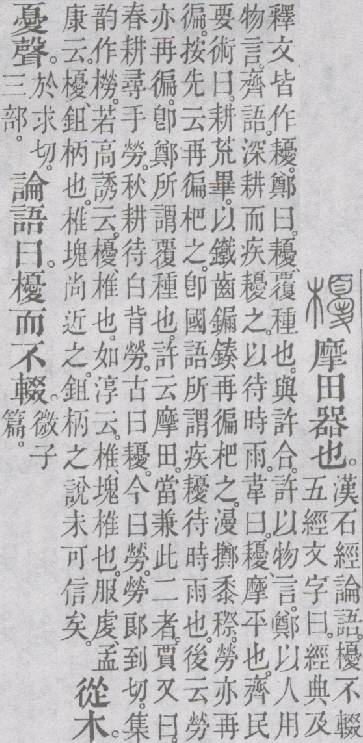 櫌摩田器也。漢石經論語。櫌不輟
五經文字曰。經典及
釋文皆作耰。鄭曰。耰、覆種也。與許合。許以物言。鄭以人用
物言。齊語。深耕而疾耰之。以待時雨。韋曰。耰、摩平也。齊民
要術曰。耕荒畢。以鐵齒再徧杷之。漫擲黍穄。勞亦再
徧。按先云再徧杷之。卽國語所謂疾耰待時雨也。後云勞
亦再徧。卽鄭所謂覆種也。許云摩田。當兼此二者。賈又曰。
春耕尋手勞。秋耕待白背勞。古曰耰。今曰勞。勞郎到切。集
韵作橯。若高誘云。櫌、椎也。如淳云。椎塊椎也。服虔孟
康云。櫌、鉏柄也。椎塊尚近之。鉏柄之說未可信矣。從木。
憂聲。於求切。三部。論語曰。櫌而不輟。微子篇。